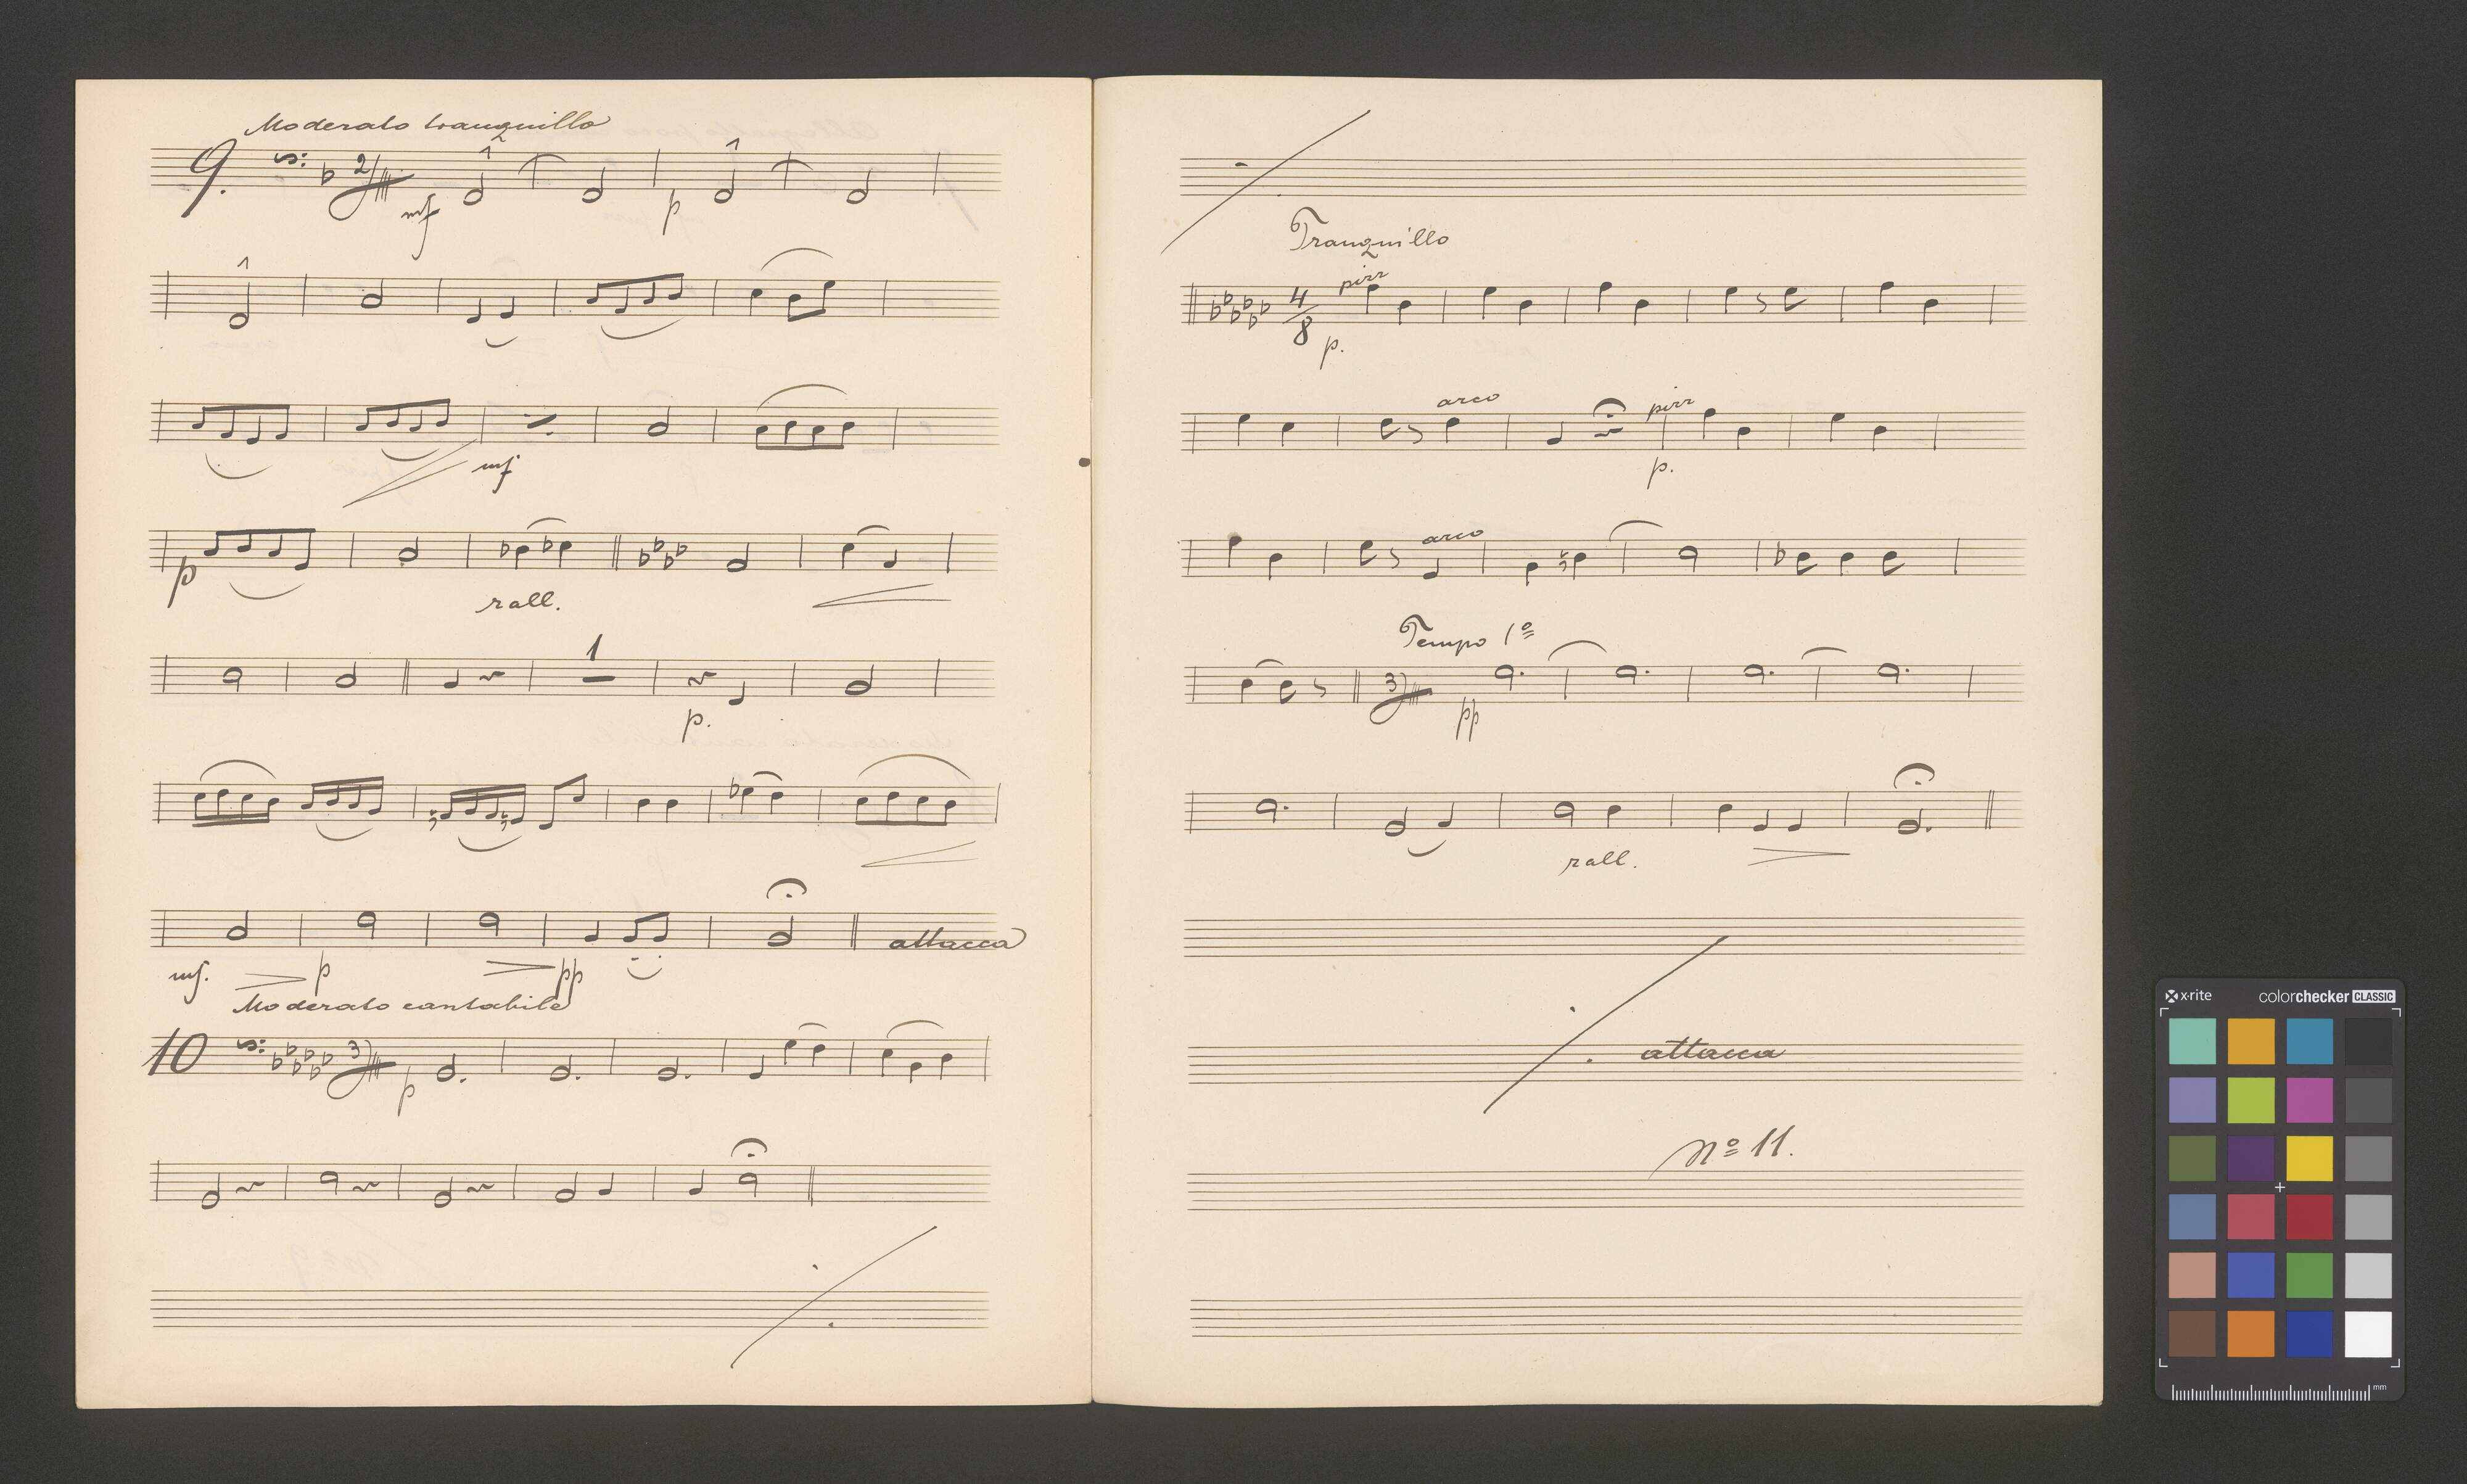 Moderato tranquillo
9. 2/4
mf p
mf
p
rall.
1
p.
attacca
mf. p pp
Moderato cantabile
10 3/4 p
Tranquillo
pizz
4/8
p.
arco pizz
p.
arco
Tempo 1º
3/4 pp
rall.
attacca
Nº 11.
x·rite colorchecker CLASSIC
mm